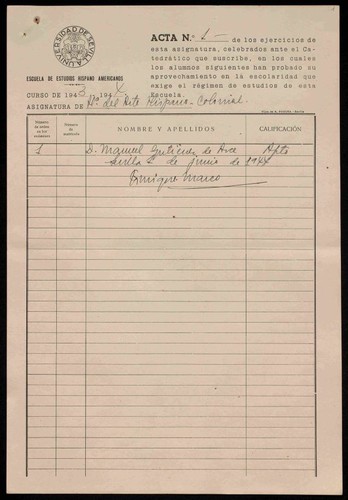 UNIVERSIDAD DE SEVILLA
ESCUELA DE ESTUDIOS HISPANO AMERICANOS
CURSO DE 1943 194X
ASIGNATURA DE Hª del Arte Hispano-Colonial.
ACTA N.º 1 de los ejercicios de
esta asignatura, celebrados ante el Ca-
tedrático que suscribe, en los cuales
los alumnos siguientes han probado su
aprovechamiento en la escolaridad que
exige el régimen de estudios de esta
Escuela.
Número de orden en los exámenes
Número de matrícula
NOMBRE Y APELLIDOS
CALIFICACIÓN
1 D. Manuel Gutiérrez de Arce Apto
Sevilla 2 de junio de 1944
Enrique Marco